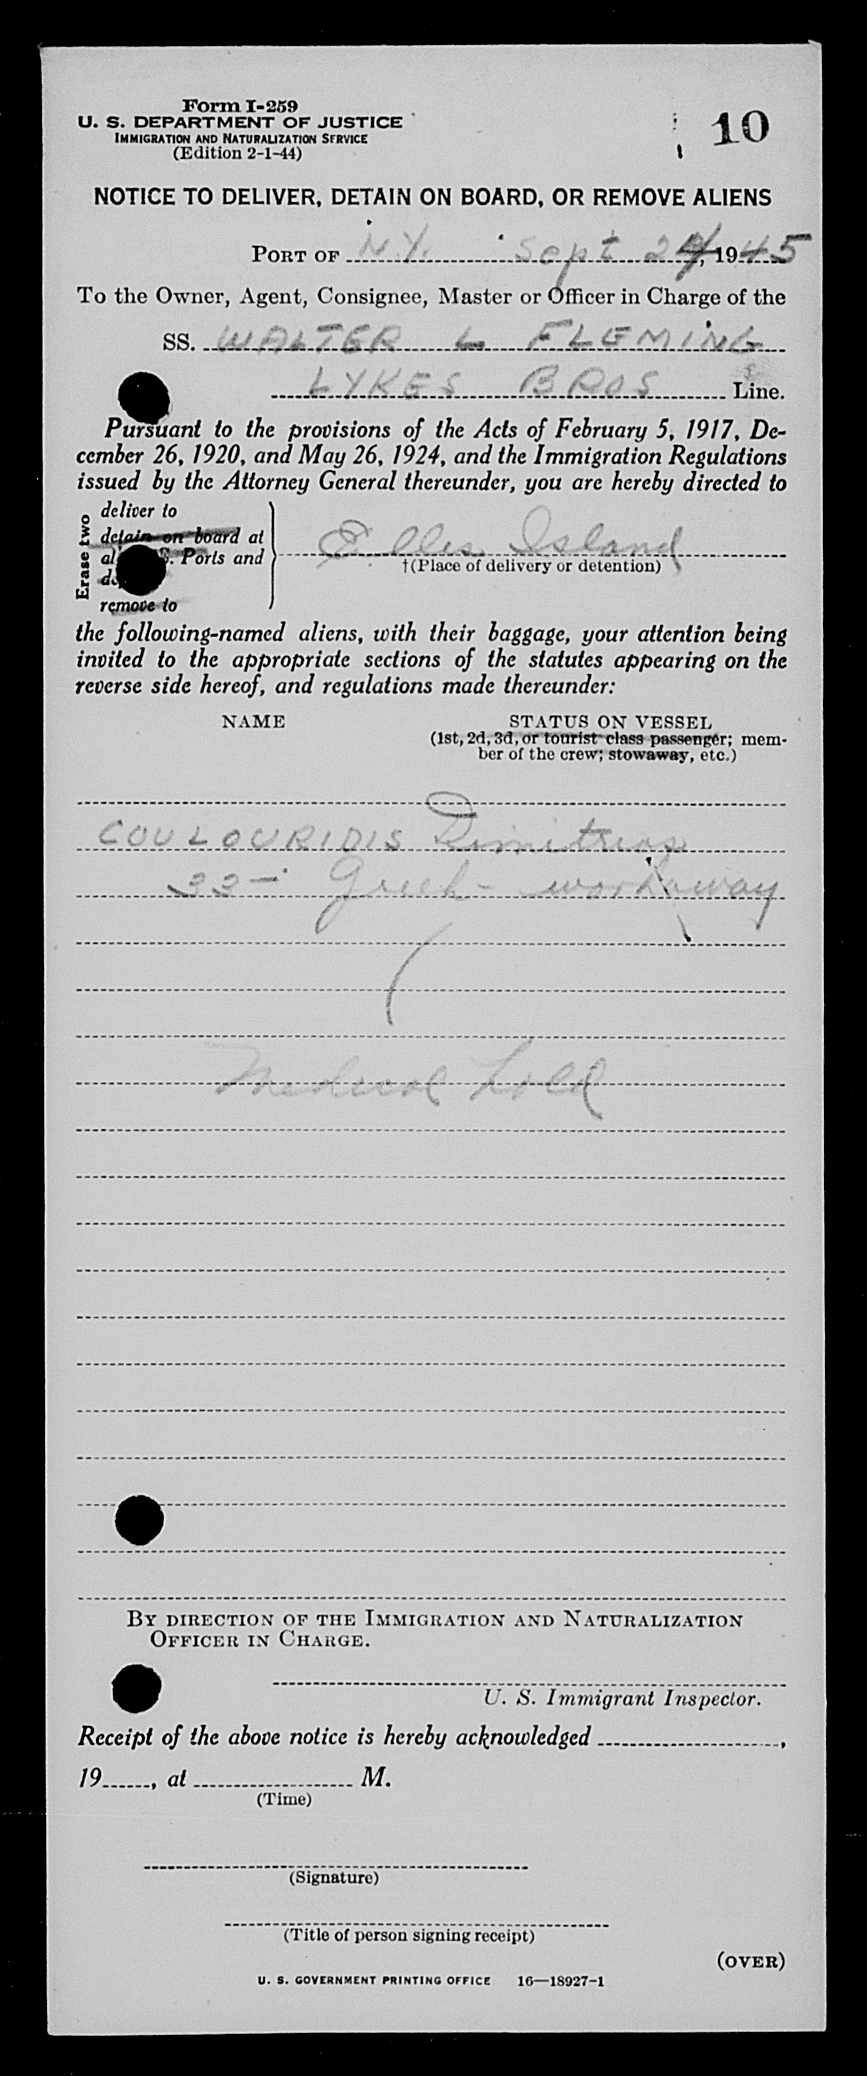 Form I-259
U. S. DEPARTMENT OF JUSTICE
IMMIGRATION AND NATURALIZATION SERVICE
(Edition 2-1-44)
10
NOTICE TO DELIVER, DETAIN ON BOARD, OR REMOVE ALIENS
PORT OF N.Y. Sept 24, 1945
To the Owner, Agent, Consignee, Master or Officer in Charge of the
SS. WALTER L FLEMING
LYKES BROS Line.
Pursuant to the provisions of the Acts of February 5, 1917, De-
cember 26, 1920, and May 26, 1924, and the Immigration Regulations
issued by the Attorney General thereunder, you are hereby directed to
Erase two
deliver to
detain on board at
al S. Ports and
d
remove to
Ellis Island
†(Place of delivery or detention)
the following-named aliens, with their baggage, your attention being
invited to the appropriate sections of the statutes appearing on the
reverse side hereof, and regulations made thereunder:
NAME STATUS ON VESSEL
(1st, 2d, 3d, or tourist class passenger; mem-
ber of the crew; stowaway, etc.)
COULOURIDIS Dimitrios
33 - Greek - workaway
Medical Hold
BY DIRECTION OF THE IMMIGRATION AND NATURALIZATION
OFFICER IN CHARGE.
U. S. Immigrant Inspector.
Receipt of the above notice is hereby acknowledged ,
19 , at M.
(Time)
(Signature)
(Title of person signing receipt)
(OVER)
U. S. GOVERNMENT PRINTING OFFICE 16—18927-1